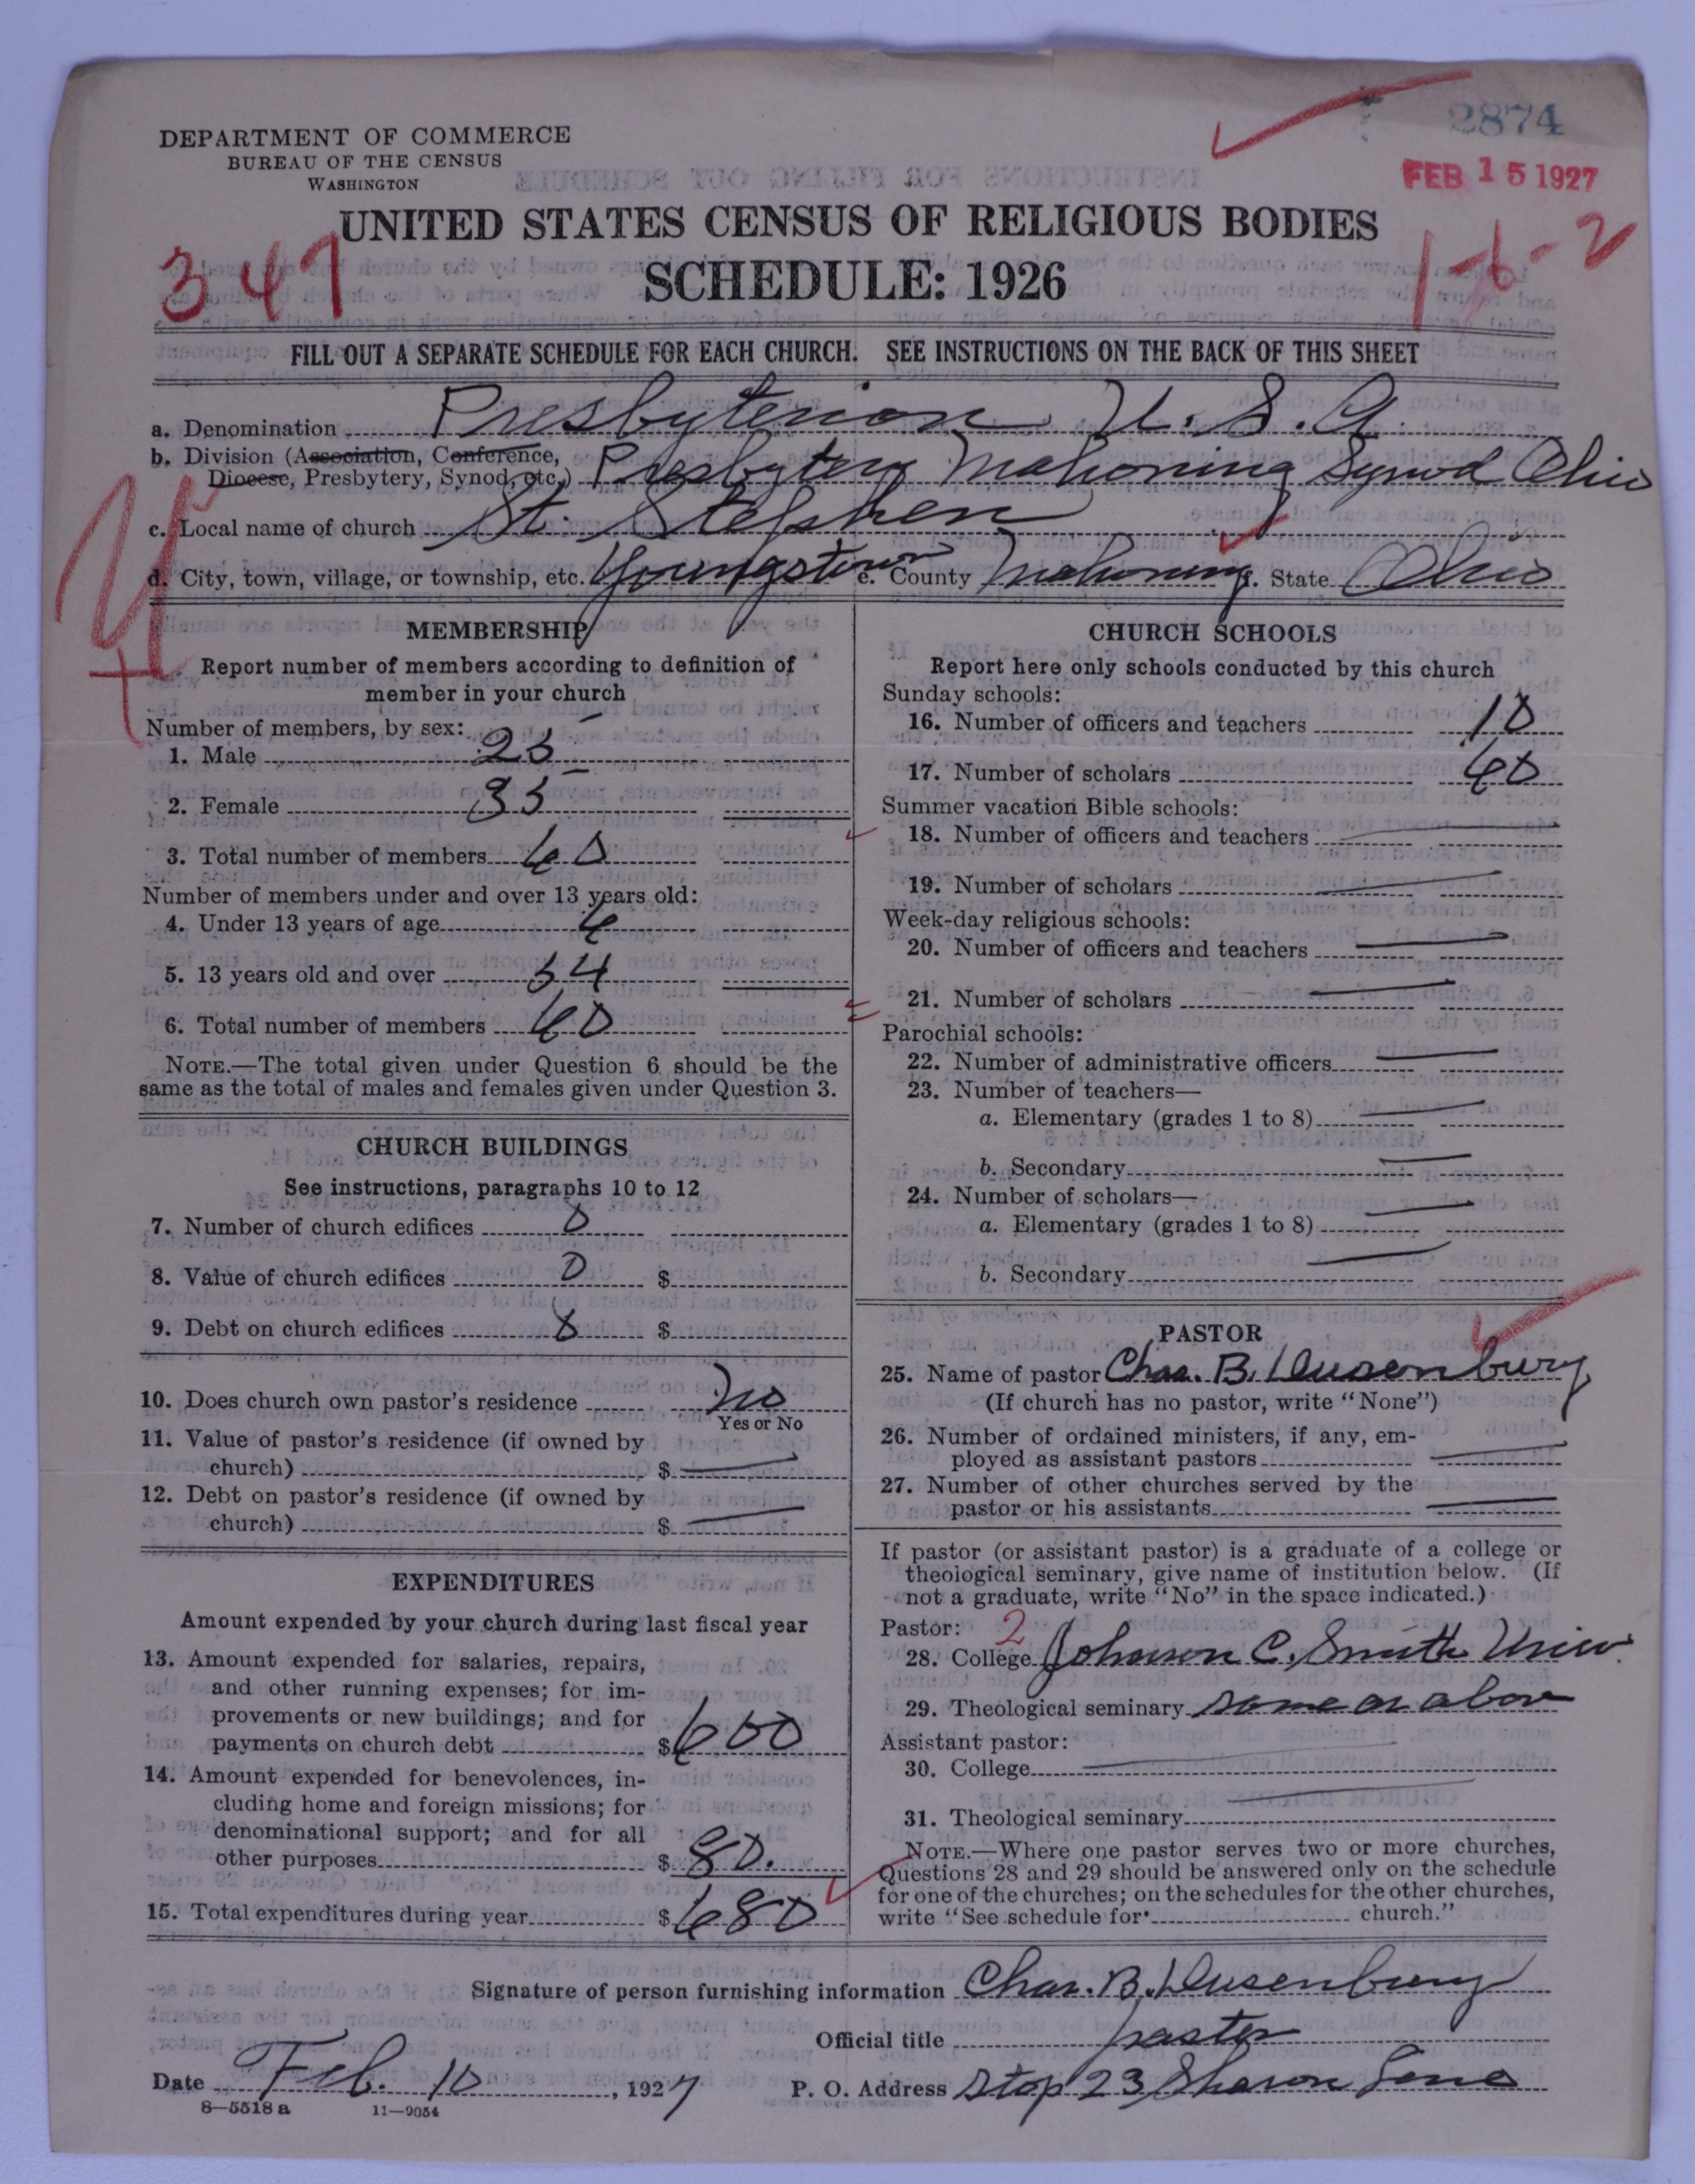 2874
DEPARTMENT OF COMMERCE
BUREAU OF THE CENSUS
WASHINGTON
FEB 15 1927
UNITED STATES CENSUS OF RELIGIOUS BODIES
347
SCHEDULE: 1926
1-6-2
FILL OUT A SEPARATE SCHEDULE FOR EACH CHURCH. SEE INSTRUCTIONS ON THE BACK OF THIS SHEET
a. Denomination Presbyterian U. S. A.
b. Division (Association, Conference,
Diocese, Presbytery, Synod, etc.) Presbytery Mahoning Synod Ohio
c. Local name of church St. Stephen
d. City, town, village, or township, etc. Youngstown e. County Mahoning f. State Ohio
MEMBERSHIP
Report number of members according to definition of
member in your church
Number of members, by sex:
1. Male 25
2. Female 35
3. Total number of members 60
Number of members under and over 13 years old:
4. Under 13 years of age 6
5. 13 years old and over 54
6. Total number of members 60
NOTE.—The total given under Question 6 should be the
same as the total of males and females given under Question 3.
CHURCH BUILDINGS
See instructions, paragraphs 10 to 12
7. Number of church edifices 0
8. Value of church edifices 0 $
9. Debt on church edifices 0 $
10. Does church own pastor's residence No
Yes or No
11. Value of pastor's residence (if owned by
church) $ —
12. Debt on pastor's residence (if owned by
church) $ —
EXPENDITURES
Amount expended by your church during last fiscal year
13. Amount expended for salaries, repairs,
and other running expenses; for im-
provements or new buildings; and for
payments on church debt $ 600
14. Amount expended for benevolences, in-
cluding home and foreign missions; for
denominational support; and for all
other purposes $ 80.
15. Total expenditures during year $ 680
CHURCH SCHOOLS
Report here only schools conducted by this church
Sunday schools:
16. Number of officers and teachers 10
17. Number of scholars 60
Summer vacation Bible schools:
18. Number of officers and teachers —
19. Number of scholars —
Week-day religious schools:
20. Number of officers and teachers —
21. Number of scholars —
Parochial schools:
22. Number of administrative officers —
23. Number of teachers—
a. Elementary (grades 1 to 8) —
b. Secondary —
24. Number of scholars—
a. Elementary (grades 1 to 8) —
b. Secondary —
PASTOR
25. Name of pastor Chas. B. Dusenbury
(If church has no pastor, write "None")
26. Number of ordained ministers, if any, em-
ployed as assistant pastors —
27. Number of other churches served by the
pastor or his assistants —
If pastor (or assistant pastor) is a graduate of a college or
theological seminary, give name of institution below. (If
not a graduate, write "No" in the space indicated.)
Pastor: 2
28. College Johnson C. Smith Univ.
29. Theological seminary same as above
Assistant pastor:
30. College —
31. Theological seminary —
NOTE.—Where one pastor serves two or more churches,
Questions 28 and 29 should be answered only on the schedule
for one of the churches; on the schedules for the other churches,
write "See schedule for church."
Signature of person furnishing information Chas. B. Dusenbury
Official title pastor
Date Feb. 10, 1927 P. O. Address Stop 23 Sharon Line
8—5518 a 11—9054